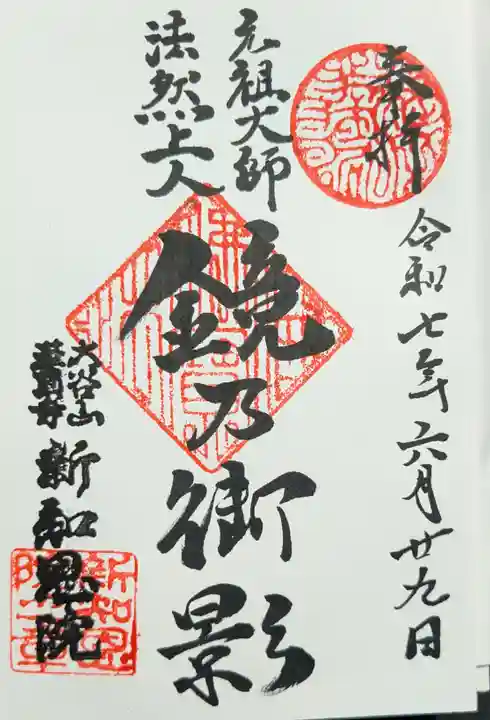 奉拝
令和七年六月廿九日
元祖大師
法然上人
鏡乃御影
大谷山
華頂寺
新知恩院